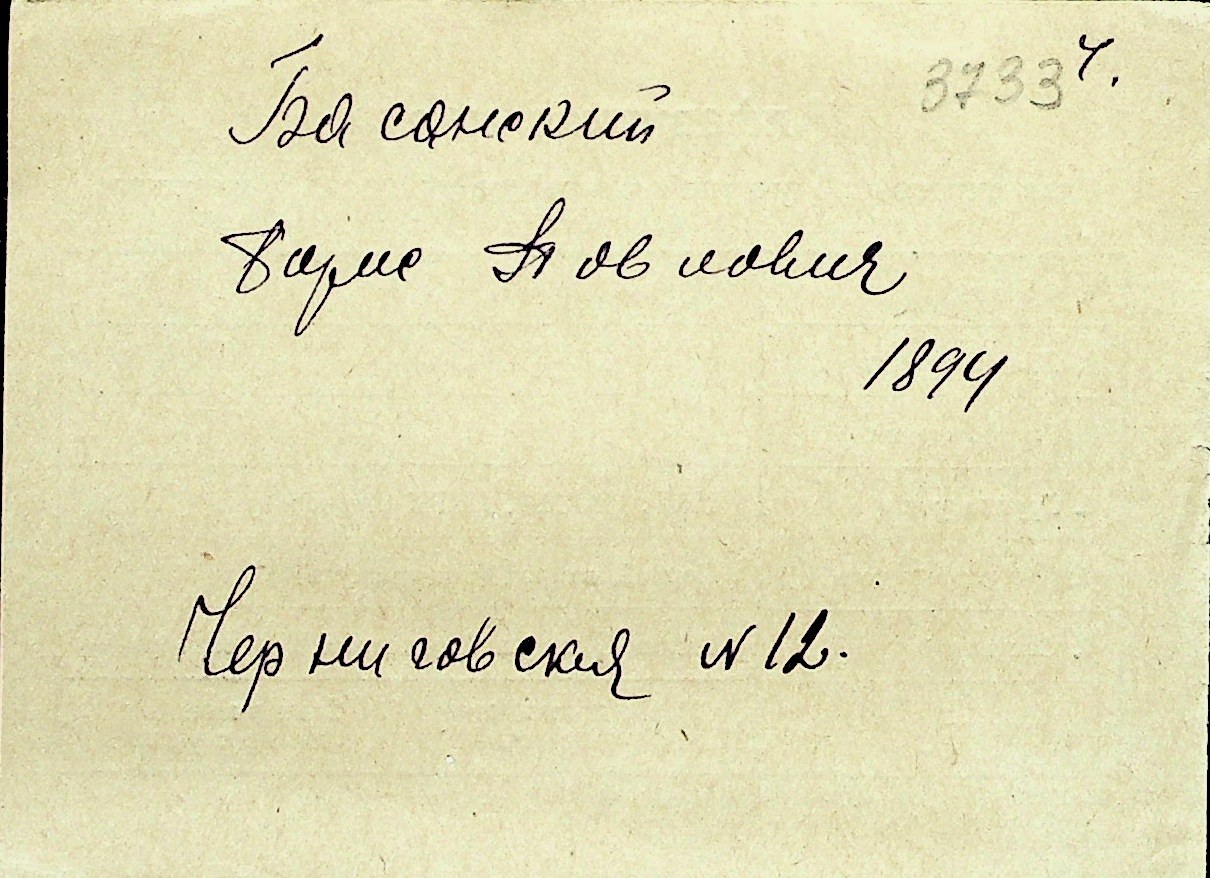 3733 ч.
Басанский
Борис Павлович
1894
Черниговская N 12.